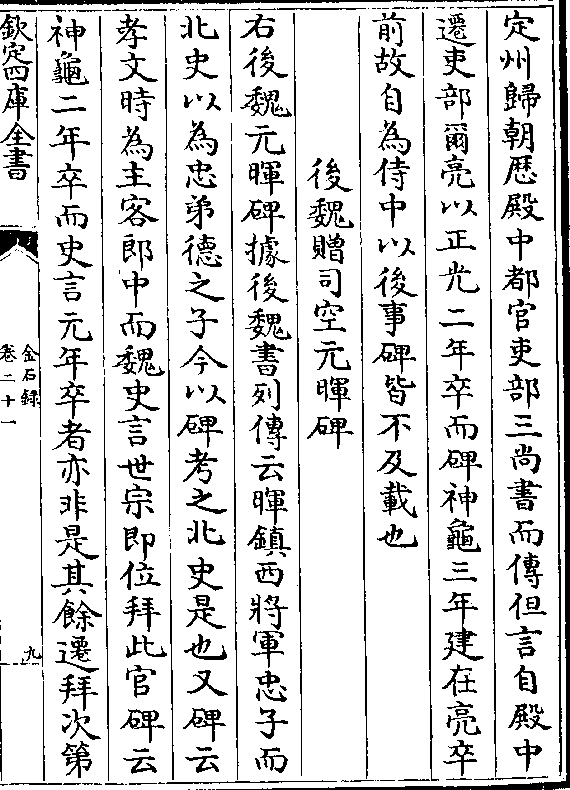 定州歸朝歴殿中都官吏部三尚書而傳但言自殿中
遷吏部爾亮以正光二年卒而碑神龜三年建在亮卒
前故自為侍中以後事碑皆不及載也
後魏贈司空元暉碑
右後魏元暉碑據後魏書列傳云暉鎮西將軍忠子而
北史以為忠弟德之子今以碑考之北史是也又碑云
孝文時為主客郎中而魏史言世宗即位拜此官碑云
神龜二年卒而史言元年卒者亦非是其餘遷拜次第
欽定四庫全書
金石録
卷二十一
九